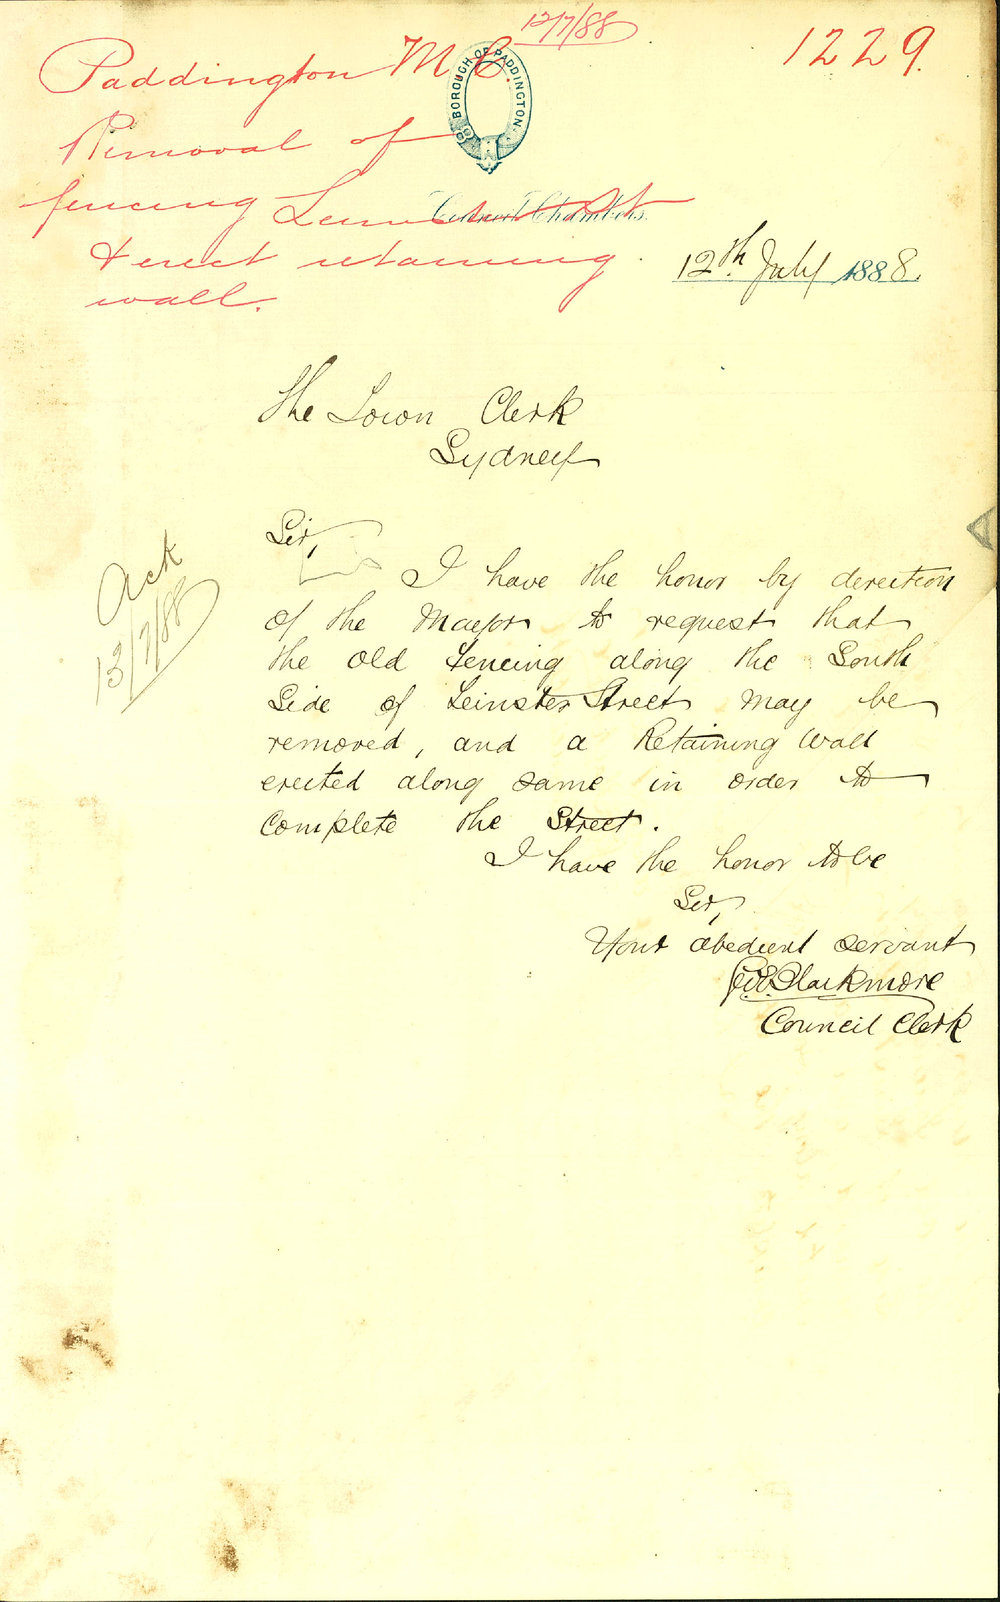 12/7/88
1229.
Paddington M.C.
BOROUGH OF PADDINGTON
Removal of
fencing Leinster St
Council Chambers,
& erect retaining
wall.
12th July 1888.
The Town Clerk
Sydney
Sir,
I have the honor by direction
of the Mayor to request that
the old Fencing along the South
Side of Leinster Street may be
removed, and a Retaining Wall
erected along same in order to
Complete the Street.
I have the honor to be
Sir,
Your obedient servant
Blackmore
Council Clerk
Ack
13/7/88